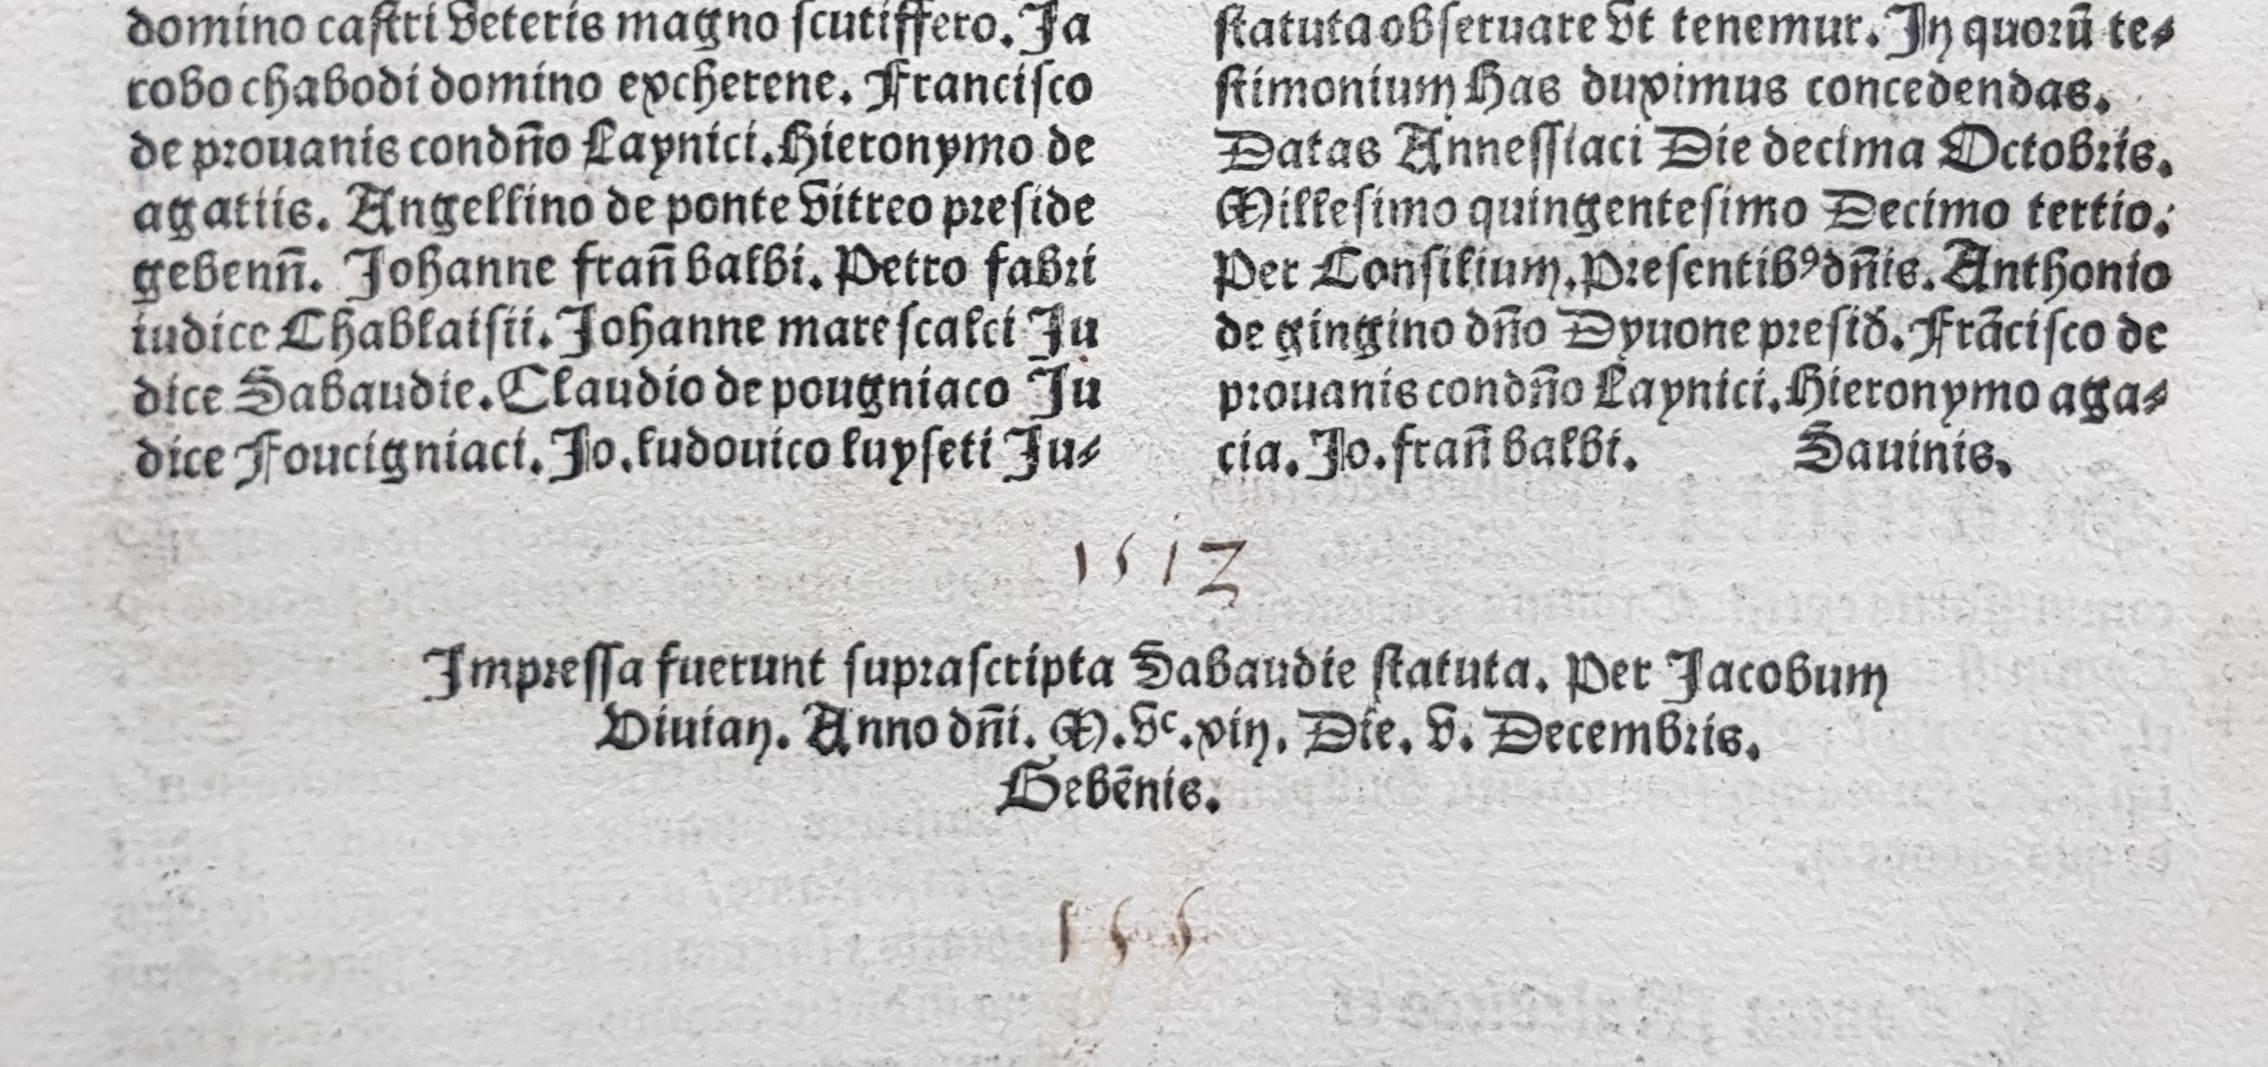 domino castri veteris magno scutiffero. Ja
cobo chabodi domino excherene. Francisco
de prouanis condn̄o Laynici. Hieronymo de
agatiis. Angellino de ponte vitreo preside
gebenn̄. Johanne frann̄ balbi. Petro fabri
iudice Chablaisii. Johanne marescalci Ju
dice Sabaudie. Claudio de pougniaco Ju
dice Foucigniaci. Jo. ludouico luyseti Ju⸗
statuta obseruare vt tenemur. In quorū te⸗
stimonium has duximus concedendas.
Datas Annessiaci Die decima Octobris.
Millesimo quingentesimo Decimo tertio.
Per Consilium. Presentibꝰ dn̄is. Anthonio
de gingino dn̄o Dyuone presid̄. Frācisco de
prouanis condn̄o Laynici. Hieronymo aga⸗
cia. Jo. fran̄ balbi. Sauinis.
1512
Impressa fuerunt suprascripta Sabaudie statuta. Per Jacobum
Viuian. Anno dn̄i. M.vᶜ.xiij. Die. v. Decembris.
Gebēnis.
155